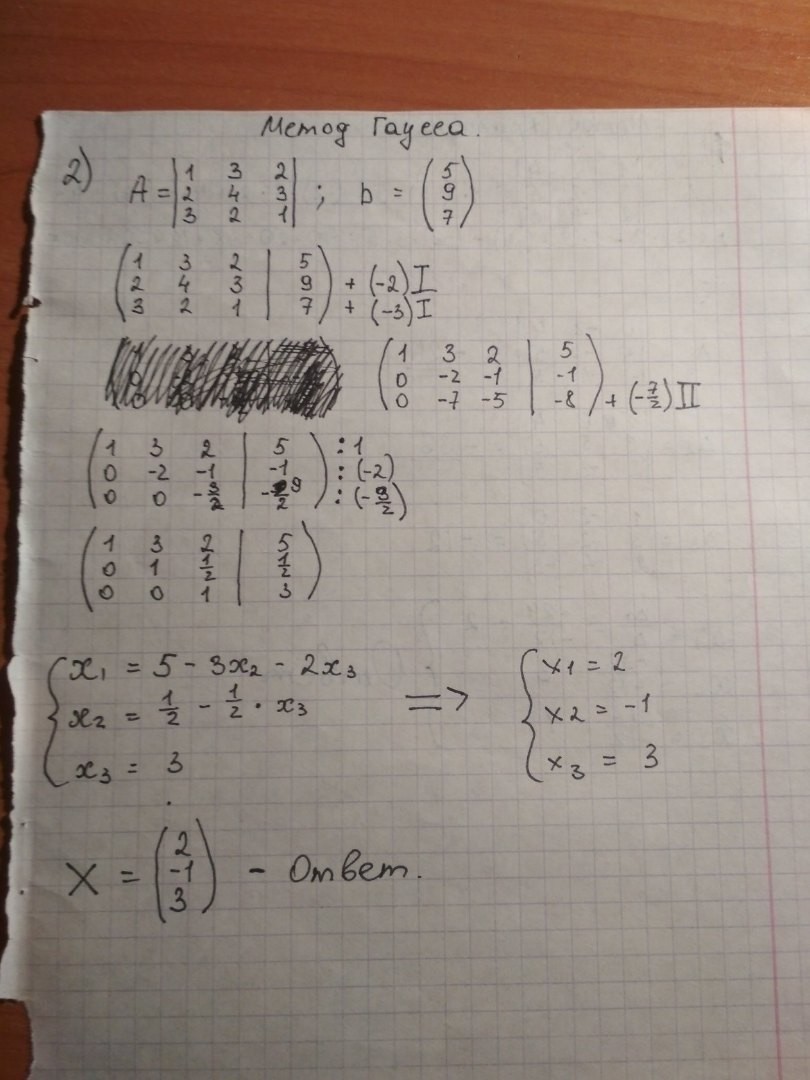 Метод Гаусса.
2) A = |1 3 2| ; b = (5)
|2 4 3| (9)
|3 2 1| (7)
(1 3 2 | 5)
(2 4 3 | 9) + (-2) I
(3 2 1 | 7) + (-3) I
(1 3 2 | 5)
(0 -2 -1 | -1)
(0 -7 -5 | -8) + (-7/2) II
(1 3 2 | 5) : 1
(0 -2 -1 | -1) : (-2)
(0 0 -3/2 | -9/2) : (-3/2)
(1 3 2 | 5)
(0 1 1/2 | 1/2)
(0 0 1 | 3)
{ x₁ = 5 - 3x₂ - 2x₃ => { x1 = 2
x₂ = 1/2 - 1/2 · x₃ x2 = -1
x₃ = 3 x₃ = 3
X = (2)
(-1) - Ответ.
(3)